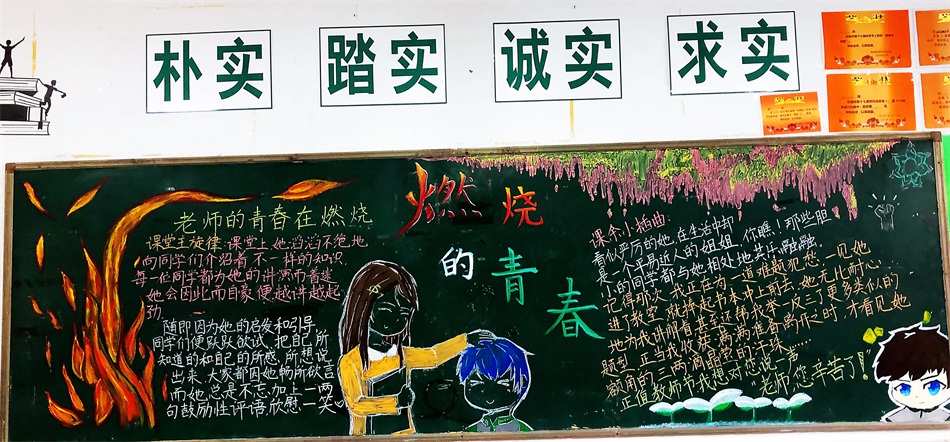 朴实 踏实 诚实 求实
燃烧的青春
老师的青春在燃烧
课堂主旋律:课堂上她滔滔不绝地
向同学们介绍着不一样的知识
每一位同学都为她的讲演而着迷
她会因此而自豪便越讲越起
劲
随即因为她的启发和引导
同学们便跃跃欲试,把自己所
知道的和自己的所感,所想说
出来,大家都因她畅所欲言
而她总是不忘加上一两
句鼓励性评语欣慰一笑
课余小插曲:
看似严厉的她,在生活中却
是一个平易近人的姐姐,你瞧!那些胆
小的同学都与她相处地其乐融融
记得那次,我正在为一道难题犯愁,一见她
进了教室,就捧起书本冲上前去,她无比耐心
地为我讲解着甚至还帮我举一反三了更多类似的
题型,正当我收获满满准备
额角的三两滴晶莹的汗珠……
正值教师节我想对您说一声
“老师,您辛苦了!”